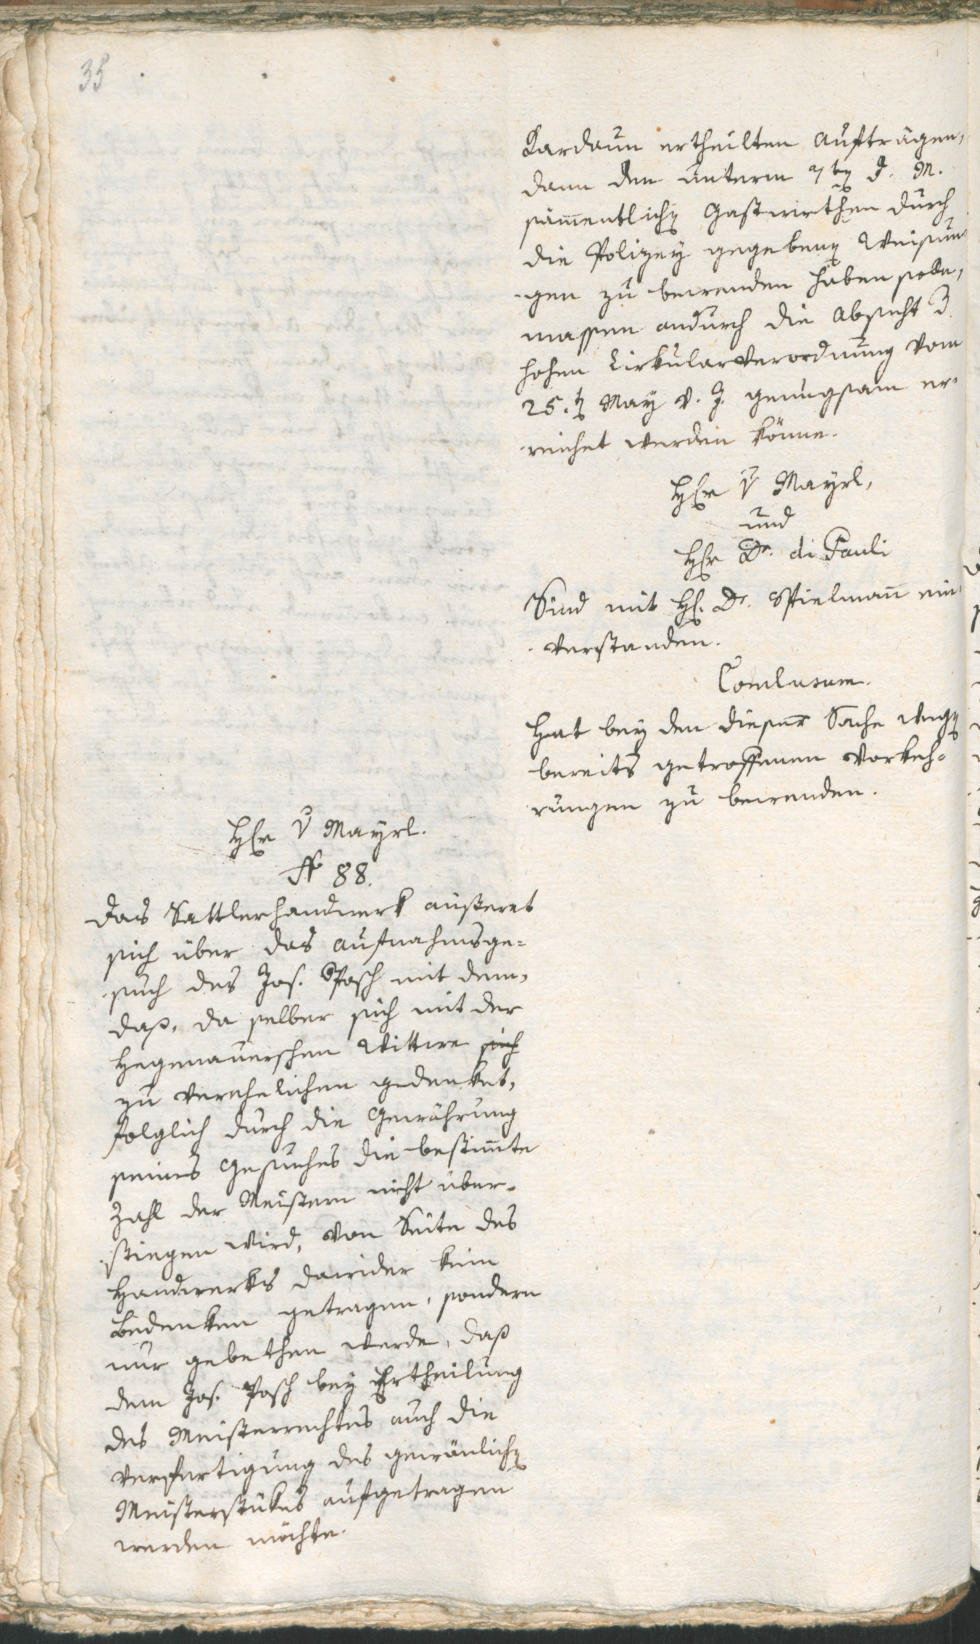 35
Kardaun ertheilten Aufträgen,
dann den unterm 7ten d. M.
sämmentlichen Gastwirthen durch
die Polizey gegebenen Weisun-
gen zu bewenden haben solle,
massen andurch die Absicht d.
hohen Cirkularverordnung vom
25.ten May v. J. genugsam er-
reichet werden könne.
Herr v Mayrl,
und
Herr Dr. di Pauli
Sind mit H. Dr. Spielmann ein-
verstanden.
Conclusum.
Hat bey den dieser Sache wegen
bereits getroffenen Vorkeh-
rungen zu bewenden.
Herr v Mayrl.
N 88.
Das Sattlerhandwerk äusseret
sich über das Aufnahmsge-
such des Jos. Posch mit dem,
daß, da selber sich mit der
Hegenauerschen Wittwe sich
zu verehelichen gedenket,
folglich durch die Gewährung
seines Gesuches die bestimmte
Zahl der Meistern nicht über-
stiegen wird, von Seite des
Handwerks dawider kein
Bedenken getragen, sondern
nur gebethen werde, daß
dem Jos. Posch bey Ertheilung
des Meisterrechtes auch die
Verfertigung des gewönlichen
Meisterstükes aufgetragen
werden möchte.